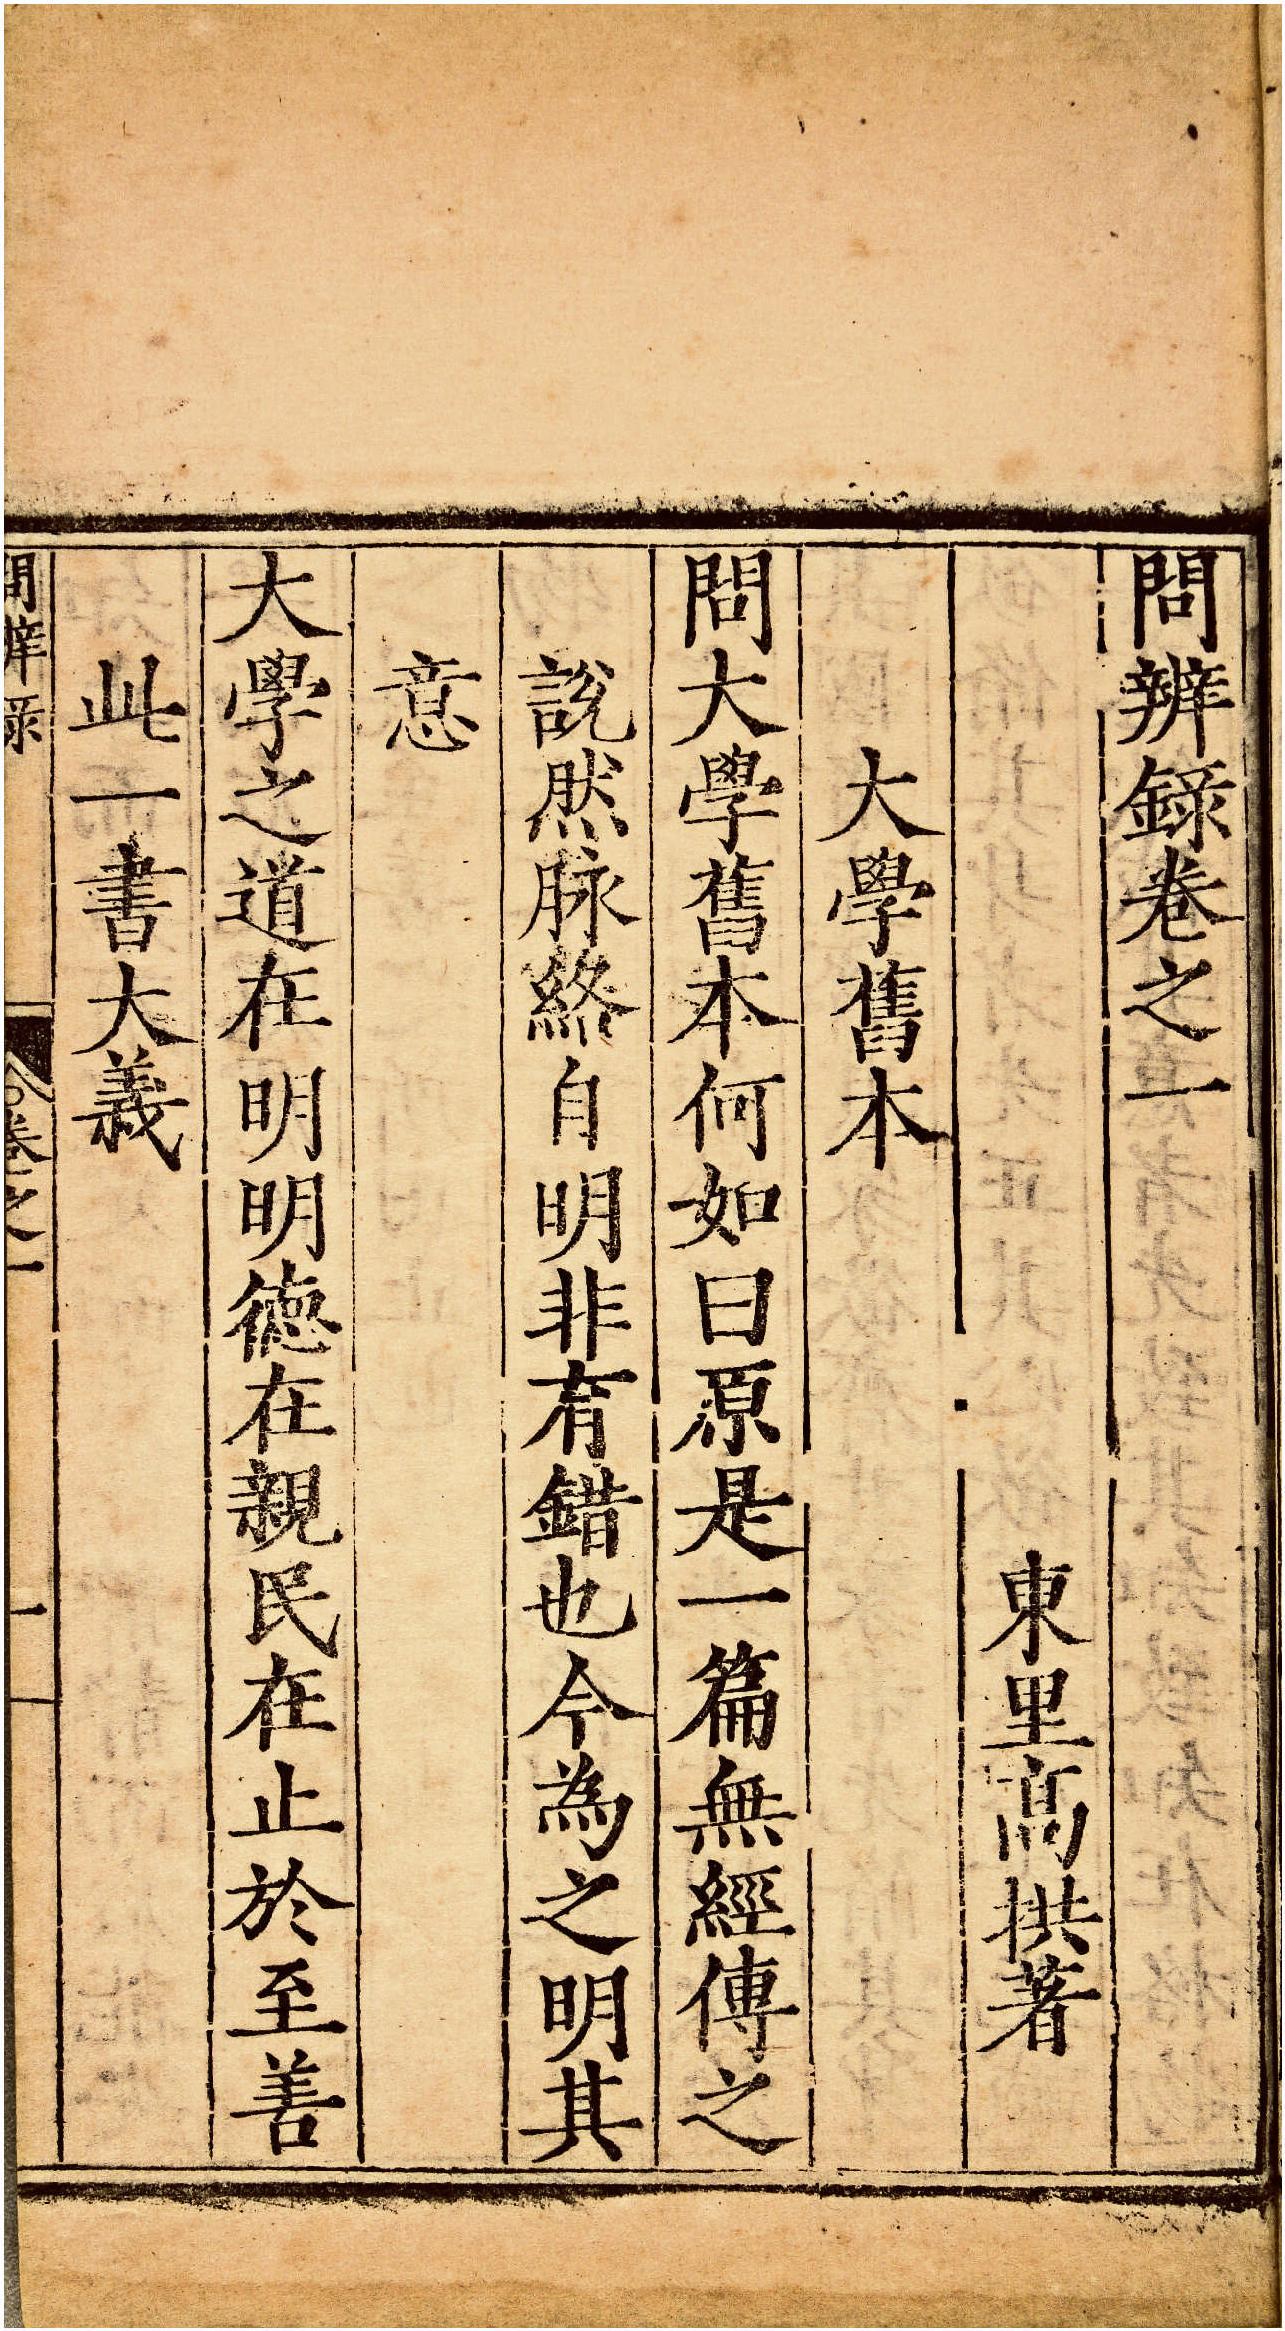 問辨錄卷之一
東里高拱著
大學舊本
問大學舊本何如曰原是一篇無經傳之
說然脉絡自明非有錯也今為之明其
意
大學之道在明明德在親民在止於至善
此一書大義
問辨錄 卷之一 一